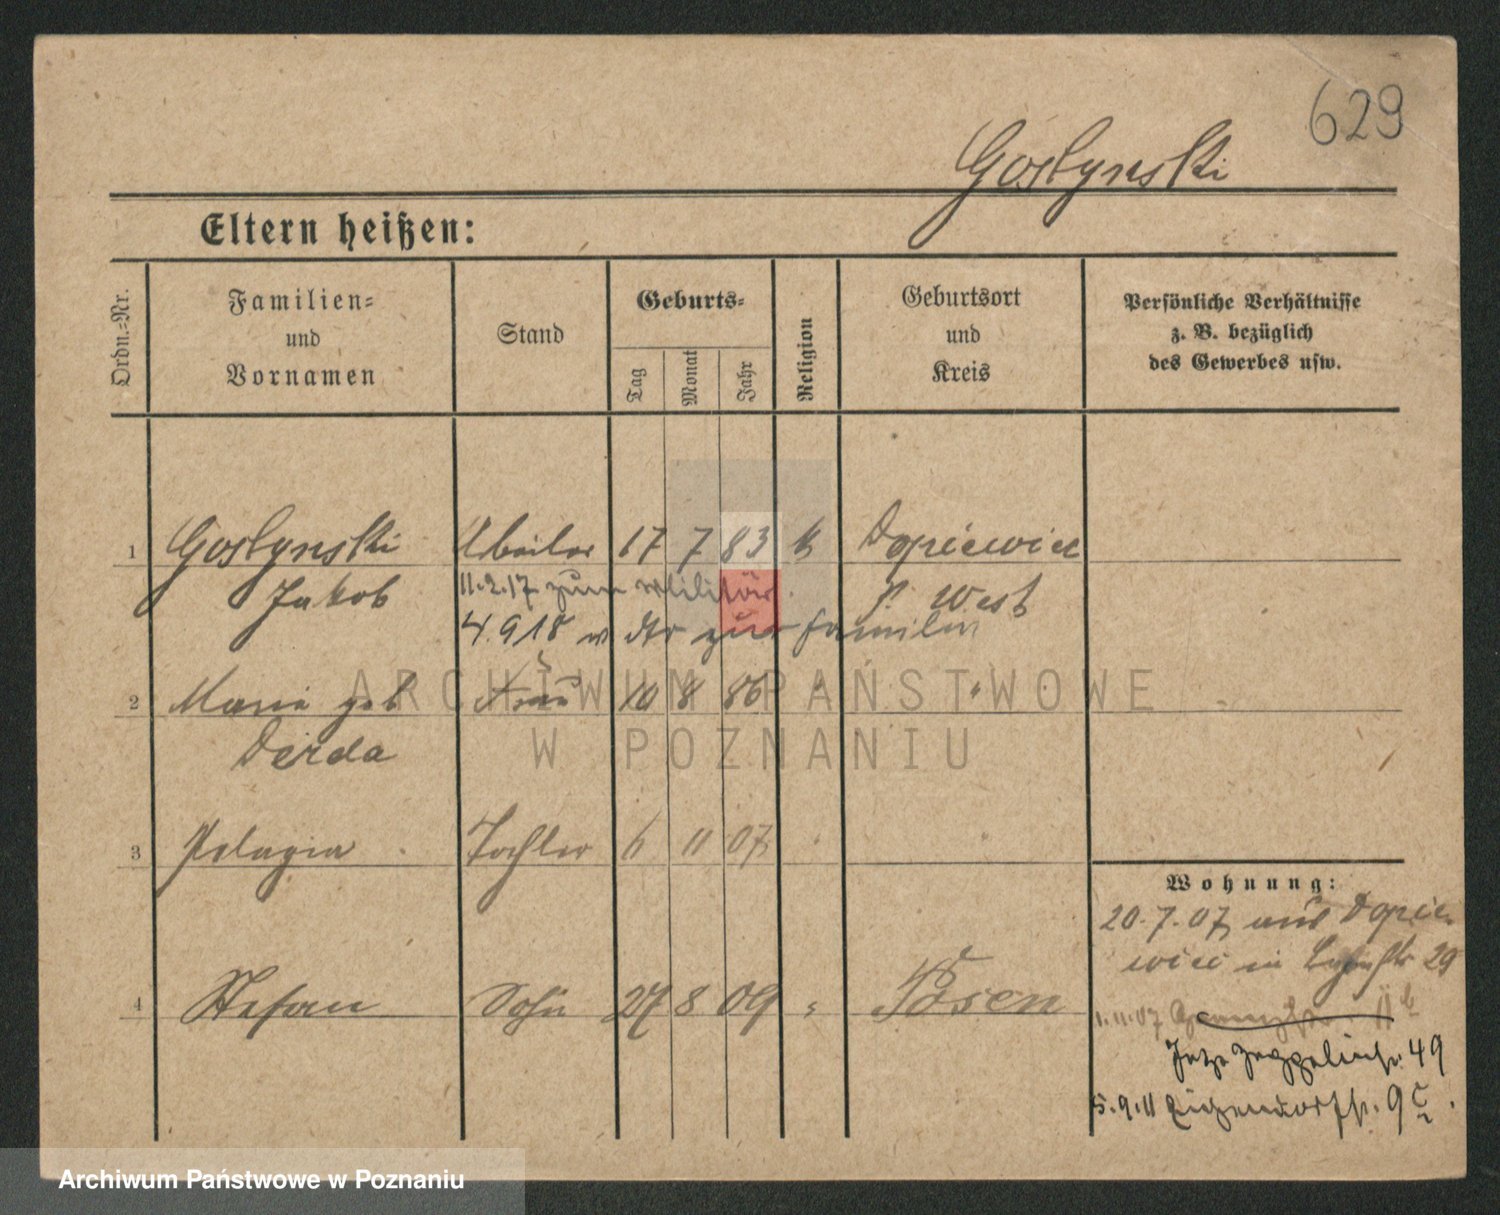 629
Goslynski
Eltern heißen:
Ordn.-Nr.
Familien-
und
Vornamen
Stand
Geburts-
Tag
Monat
Jahr
Religion
Geburtsort
und
Kreis
Persönliche Verhältnisse
z. B. bezüglich
des Gewerbes usw.
1 Goslynski Arbeiter 17 7 83 k Dopiewiec
Jakob P. West
11.2.17 zum Militär.
4.9 18 zur Familie
2 Marie geb Frau 10 8 86 " "
Derda
3 Pelagia Tochter 6 11 07 " "
4 Stefan Sohn 27 8 09 " Posen
Wohnung:
20.7.07 aus Dopie-
wiec in 29
1.11.07
Jetzt Zeppelinstr. 49
5.9.11 Eichendorffstr. 9
ARCHIWUM PAŃSTWOWE
W POZNANIU
Archiwum Państwowe w Poznaniu